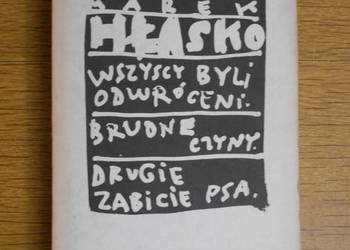 MAREK
HŁASKO
WSZYSCY BYLI
ODWRÓCENI.
BRUDNE
CZYNY.
DRUGIE
ZABICIE PSA.